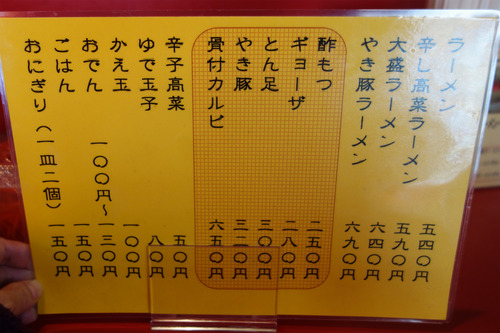 ラーメン 五四〇円
辛し高菜ラーメン 五九〇円
大盛ラーメン 六四〇円
やき豚ラーメン 六九〇円
酢もつ 二五〇円
ギョーザ 二八〇円
とん足 三〇〇円
やき豚 三二〇円
骨付カルビ 六五〇円
辛子高菜 五〇円
ゆで玉子 八〇円
かえ玉 一〇〇円
おでん 一〇〇円～一三〇円
ごはん 一五〇円
おにぎり(一皿二個) 一五〇円